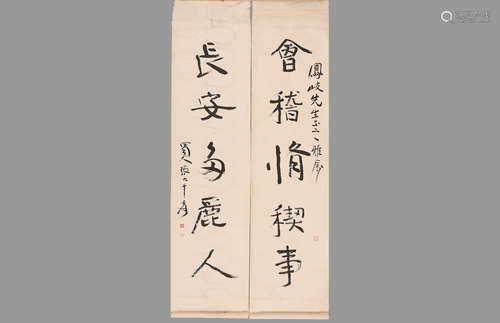 會稽脩稧事
鳳岐先生正之雅屬
長安多麗人
蜀人張大千爰